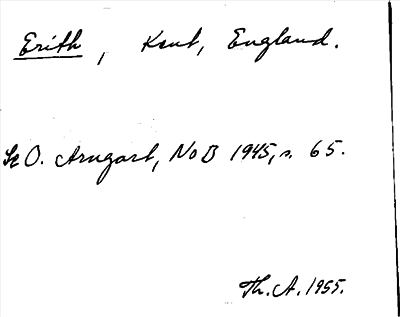 Erith, Kent, England.
Se O. Arngart, NoB 1945, s. 65.
Th. A. 1955.